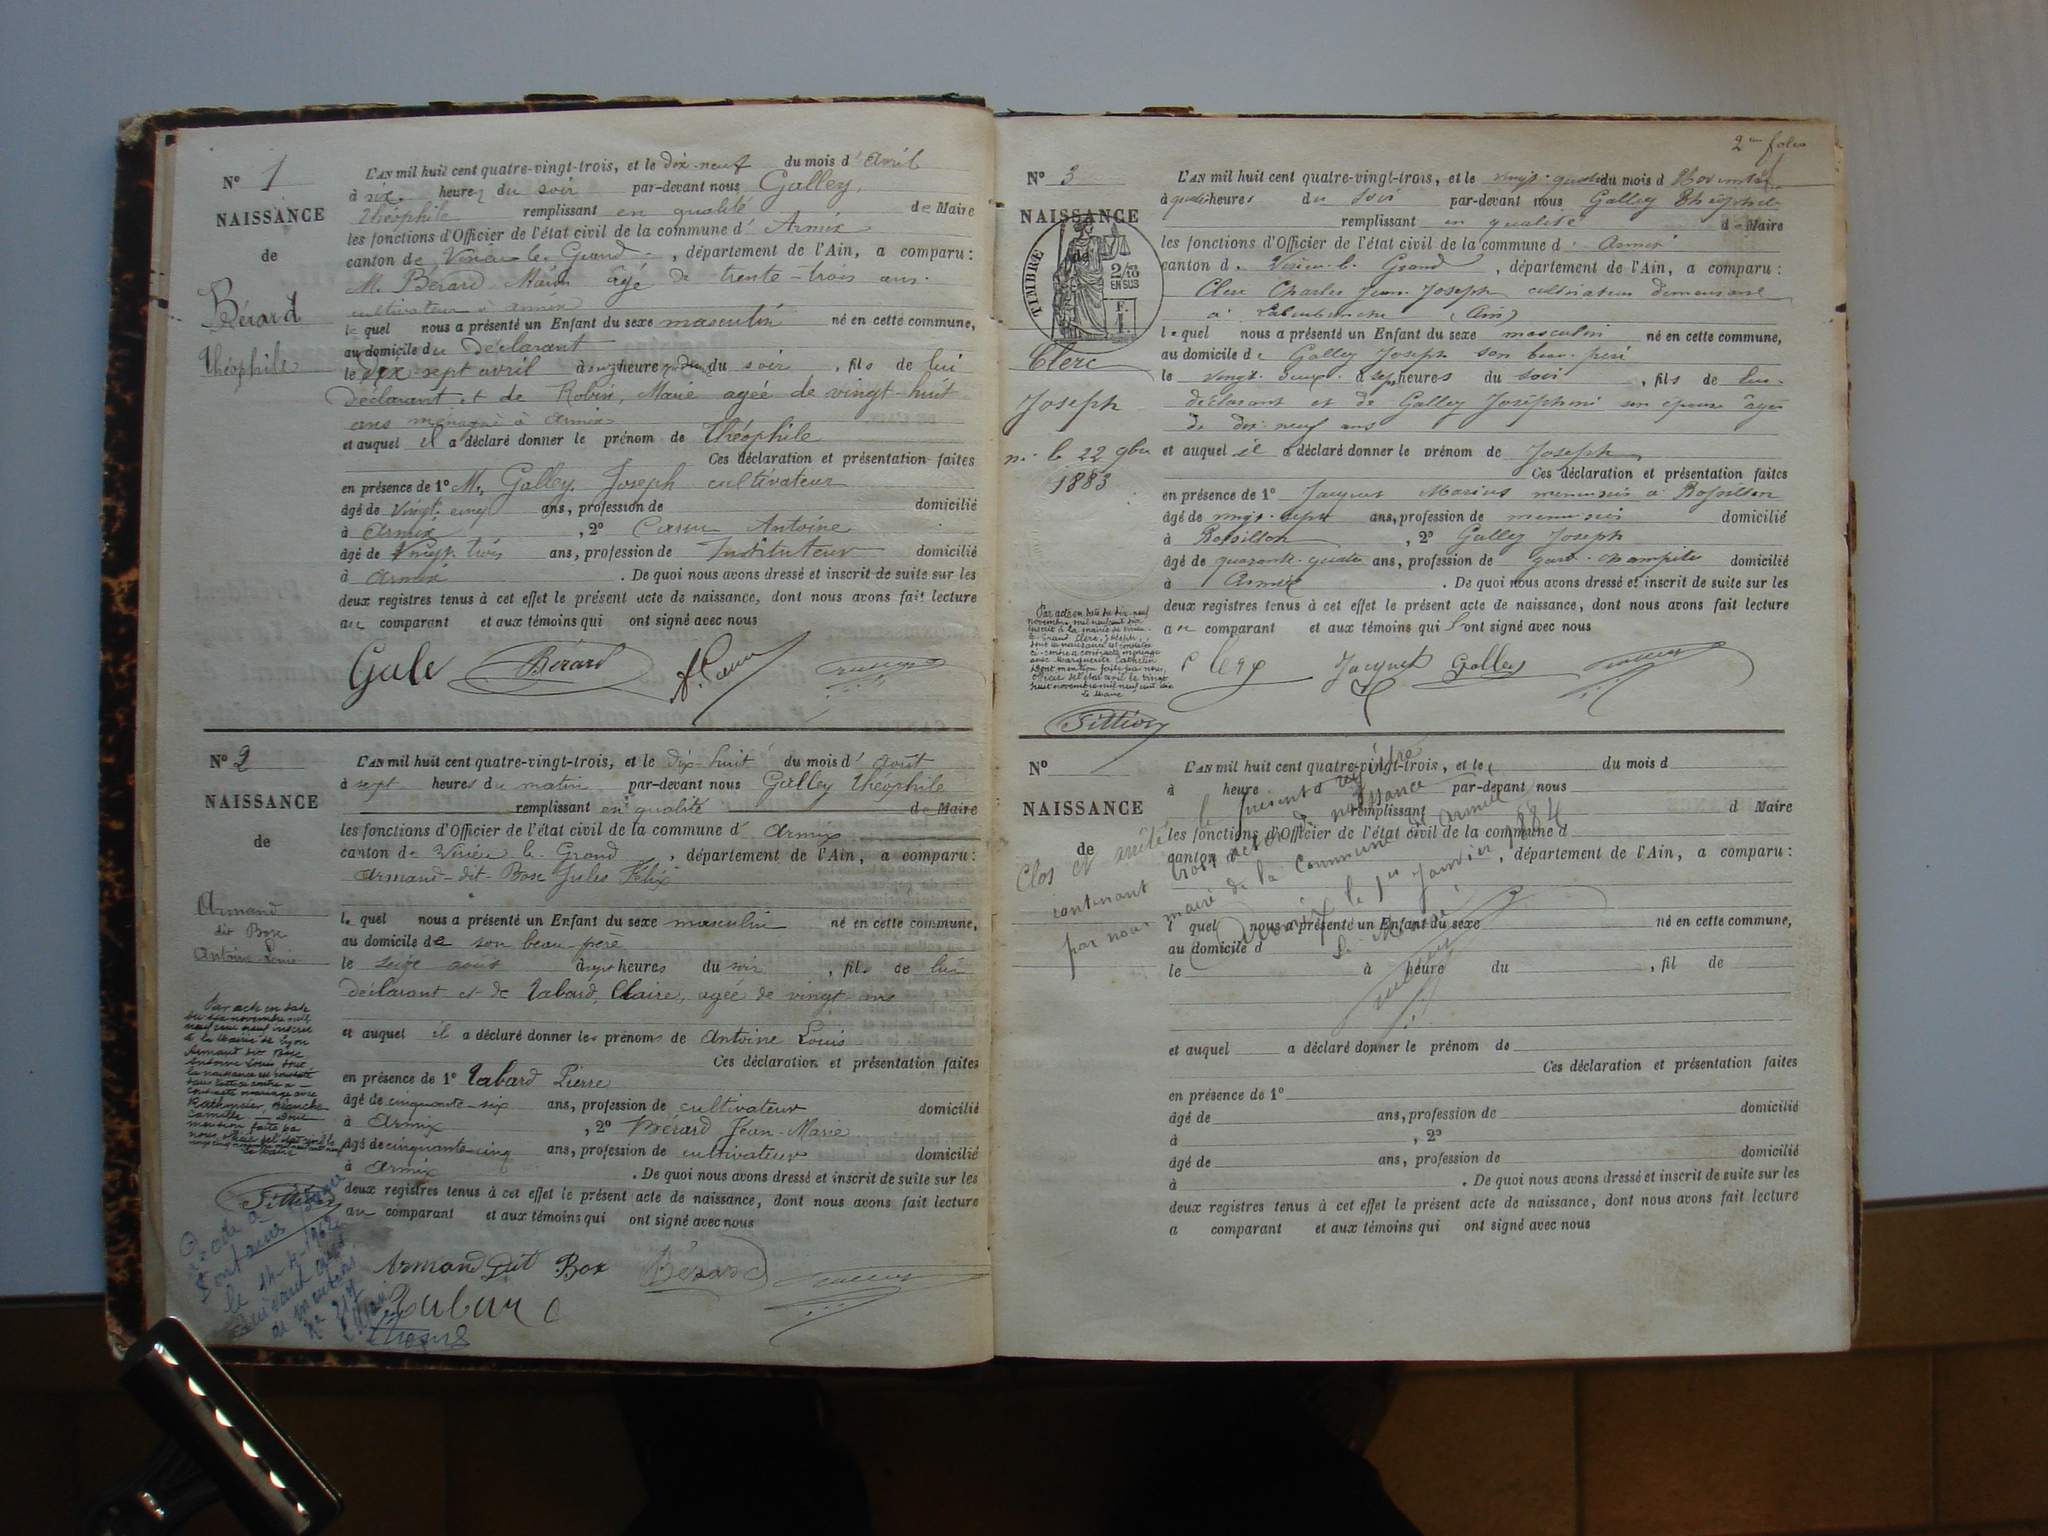 N° 1
NAISSANCE
de
Bérard
Théophile
L'AN mil huit cent quatre-vingt-trois, et le dix-neuf du mois d'avril
à six heures du soir par-devant nous Galley,
Théophile remplissant en qualité de Maire
les fonctions d'Officier de l'état civil de la commune d'Armix
canton de Virieu-le-Grand, département de l'Ain, a comparu:
M. Bérard Marin âgé de trente-trois ans.
cultivateur à Armix
lequel nous a présenté un Enfant du sexe masculin né en cette commune,
au domicile du déclarant
le dix-sept avril à heures du soir, fils de lui
déclarant et de Robin, Marie agée de vingt-huit
ans ménagère à Armix
et auquel il a déclaré donner le prénom de Théophile
Ces déclaration et présentation faites
en présence de 1° M. Galley, Joseph cultivateur
âgé de vingt-cinq ans, profession de domicilié
à Armix, 2° Antoine
âgé de vingt-trois ans, profession de Instituteur domicilié
à Armix. De quoi nous avons dressé et inscrit de suite sur les
deux registres tenus à cet effet le présent acte de naissance, dont nous avons fait lecture
au comparant et aux témoins qui ont signé avec nous
Gale Bérard
N° 2
NAISSANCE
de
Armand
dit Box
Antoine Louis
L'AN mil huit cent quatre-vingt-trois, et le dix-huit du mois d'août
à sept heures du matin par-devant nous Galley Théophile
remplissant en qualité de Maire
les fonctions d'Officier de l'état civil de la commune d'Armix
canton de Virieu le Grand, département de l'Ain, a comparu:
Armand-dit-Box Jules Félix
lequel nous a présenté un Enfant du sexe masculin né en cette commune,
au domicile de son beau-père
le seize août à sept heures du soir, fils de lui
déclarant et de Tabard, Claire, agée de vingt ans
et auquel il a déclaré donner les prénoms de Antoine Louis
Ces déclaration et présentation faites
en présence de 1° Tabard Pierre
âgé de cinquante-six ans, profession de cultivateur domicilié
à Armix, 2° Bérard Jean-Marie
âgé de cinquante-cinq ans, profession de cultivateur domicilié
à Armix. De quoi nous avons dressé et inscrit de suite sur les
deux registres tenus à cet effet le présent acte de naissance, dont nous avons fait lecture
au comparant et aux témoins qui ont signé avec nous
Par acte en date
du six novembre mil
neuf cent neuf inscrit
à la Mairie de Lyon
Armand dit Box
Antoine Louis, dont
la naissance est constatée
dans l'acte ci-contre a
contracté mariage avec
Blanche
Camille Dont
mention faite par
nous, officier de l'état civil le
Le Maire
Décédé à
le 1962
Armand Dit Box Bérard
Tabard
2me folio
N° 3
NAISSANCE
de
TIMBRE
2/10
EN SUS
F.
1
Clerc
Joseph
né le 22 9bre
1883
L'AN mil huit cent quatre-vingt-trois, et le vingt-quatre du mois d Novembre
à quatre heures du soir par-devant nous Galley Théophile
remplissant en qualité de Maire
les fonctions d'Officier de l'état civil de la commune d'Armix
canton de Virieu-le Grand, département de l'Ain, a comparu:
Clerc Charles Jean-Joseph cultivateur demeurant
à (Ain)
lequel nous a présenté un Enfant du sexe masculin né en cette commune,
au domicile de Galley Joseph son beau-père
le vingt-deux à sept heures du soir, fils de lui
déclarant et de Galley Joséphine son épouse âgée
de dix-neuf ans
et auquel il a déclaré donner le prénom de Joseph
Ces déclaration et présentation faites
en présence de 1° Jacquet Marius menuisier à Rossillon
âgé de vingt-sept ans, profession de menuisier domicilié
à Rossillon, 2° Galley Joseph
âgé de quarante-quatre ans, profession de garde-champêtre domicilié
à Armix. De quoi nous avons dressé et inscrit de suite sur les
deux registres tenus à cet effet le présent acte de naissance, dont nous avons fait lecture
au comparant et aux témoins qui ont signé avec nous
Par acte en date du dix-neuf
novembre mil neuf cent dix
inscrit à la mairie de Virieu-
le-Grand Clerc, Joseph,
dont la naissance est constatée
ci-contre a contracté mariage
avec Marguerite Catherin
Dont mention faite par nous,
officier de l'état civil le vingt
huit novembre mil neuf cent dix
Le Maire
Clerc Jacquet Galley
N°
NAISSANCE
de
L'AN mil huit cent quatre-vingt-trois, et le du mois d
à heure d par-devant nous
remplissant d Maire
les fonctions d'Officier de l'état civil de la commune d
canton d, département de l'Ain, a comparu:
l quel nous a présenté un Enfant du sexe né en cette commune,
au domicile d
le à heure du, fil de
et auquel a déclaré donner le prénom de
Ces déclaration et présentation faites
en présence de 1°
âgé de ans, profession de domicilié
à, 2°
âgé de ans, profession de domicilié
à. De quoi nous avons dressé et inscrit de suite sur les
deux registres tenus à cet effet le présent acte de naissance, dont nous avons fait lecture
a comparant et aux témoins qui ont signé avec nous
Clos et arrêté le présent registre
contenant trois actes de naissance
par nous maire de la Commune d'Armix
Armix le 1er Janvier 1884
Le Maire